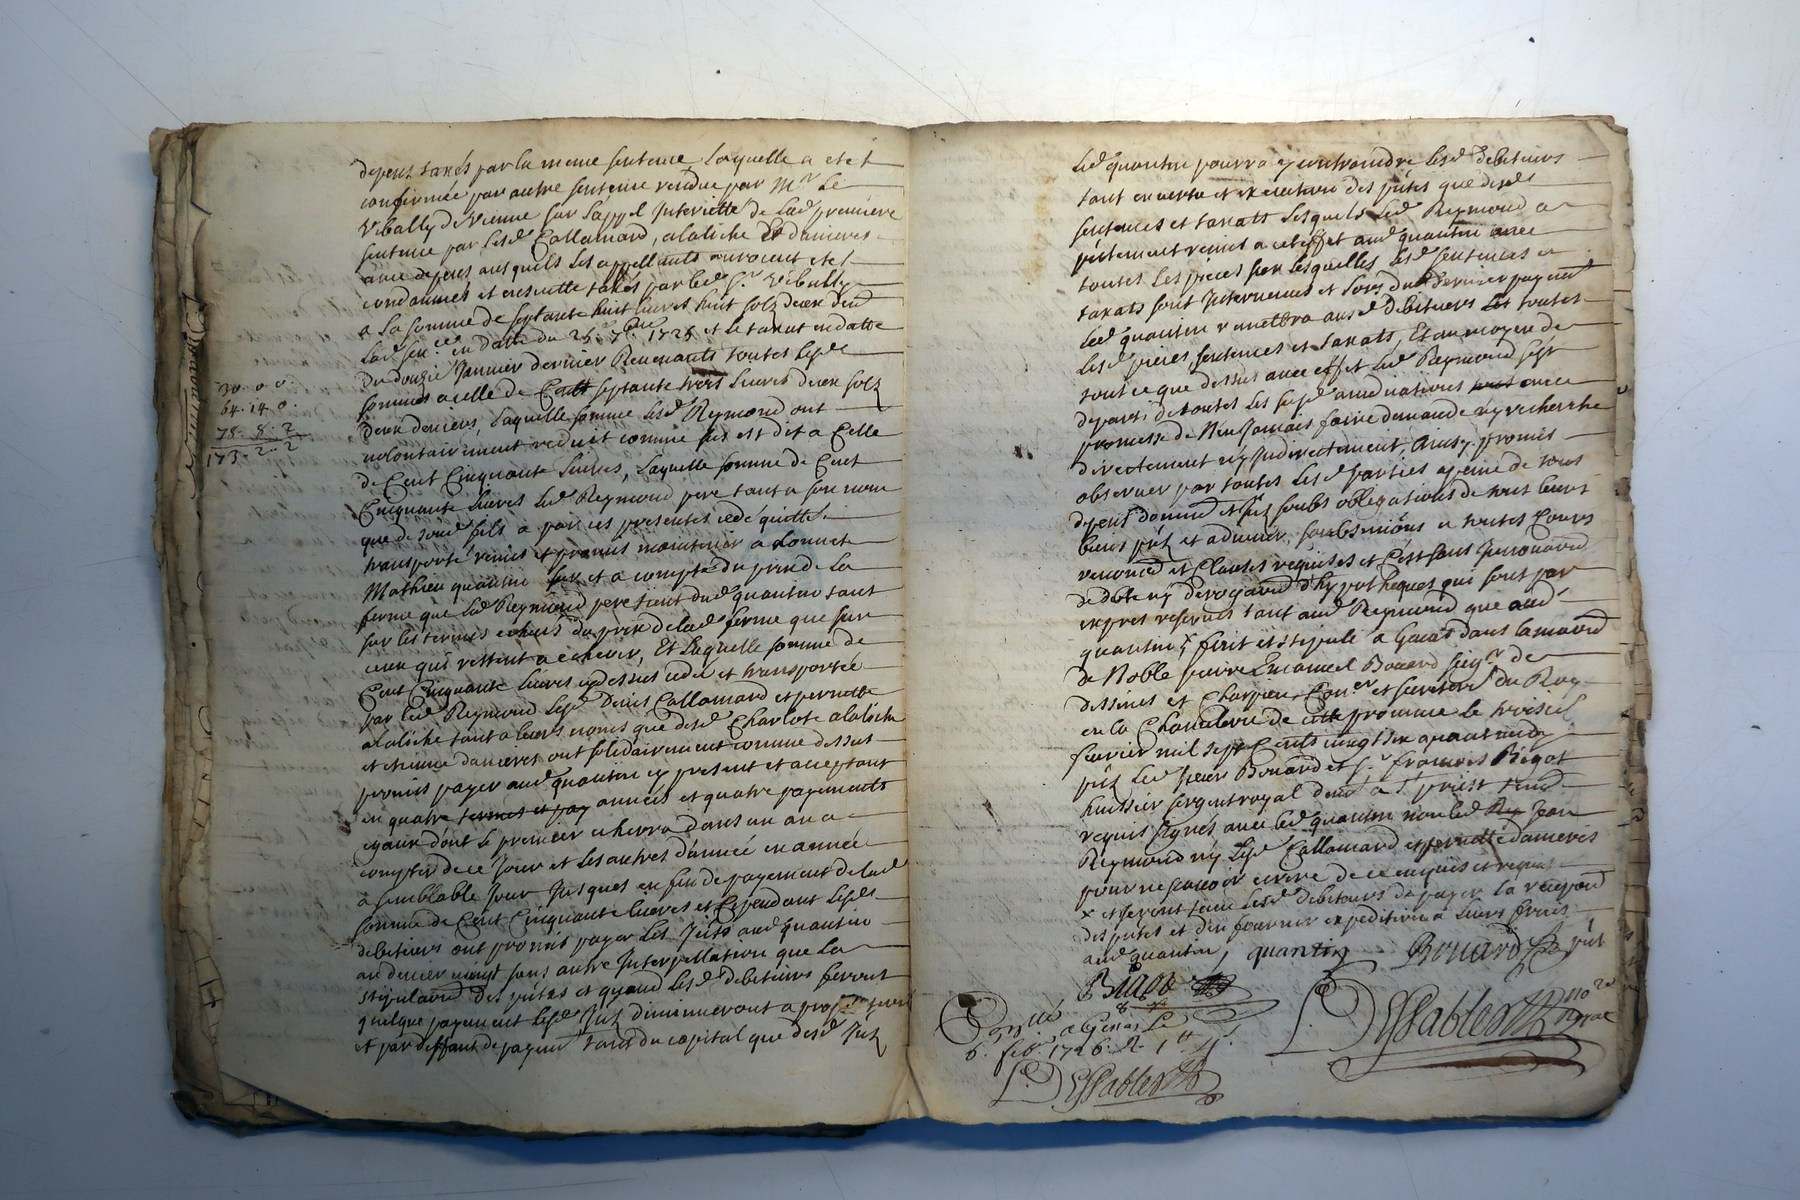 depens taxés par la meme sentence Laquelle a esté
confirmée par autre sentence rendue par Mr Le
Vibally de Vienne sur Lappel Interietté de Lad premiere
sentence par Lesd Callamard, alaliche et danieres
avec depens ausquels Les appellants auroient esté
condamnés et ensuitte taxés par led Sr Vibally
a La somme de septante huit Livres huit solz deux den
Lad sen.ce en datte du 25 7bre 1725 et Le taxat en datte
Du douzie Janvier dernier Revenants toutes Lesd
sommes a celle de Cent septante trois Livres deux solz
deux deniers, Laquelle somme Lesd Reymond ont
volontairement reduit comme sus est dit a Celle
de Cent Cinquante Livres, Laquelle somme de Cent
Cinquante Livres Led Reymond pere tant a son nom
que de sond fils a par ces presentes cedé quitté
transporté remis et promis maintenir a
Mathieu quantin sur et a compte du prix de La
ferme que Led Reymond pere tient dud quantin tant
sur les termes echeus du prix de Lad ferme que sur
ceux qui restent a echeoir, Et Laquelle somme de
Cent Cinquante Livres cy dessus cedée et transportée
par Led Reymond Lesd Denis Callamard et pernette
alaliche tant a Leurs noms que desd Charlote alaliche
et etienne danieres ont solidairement comme dessus
promis payer aud quantin cy present et acceptant
en quatre termes et pay années et quatre payements
egaux dont Le premier echerra dans un an a
compter de ce Jour et Les autres dannée en année
a semblable Jour Jusques en fin de payement de Lad
somme de Cent Cinquante Livres et Cependant Lesd
debiteurs ont promis payer Les Jntts aud quantin
au denier vingt sans autre Interpellation que La
stipulation des pntes et quand Lesd debiteurs feront
quelque payement Lesd Jntz diminueront a
et par deffaut de payem tant du capital que desd Jntz
30 . 0 . 0 .
64 . 14 . 0 .
78 . 8 . 2
173 . 2 . 2
Led quantin pourra y contraindre Lesd debiteurs
tant en vertu et execution des pntes que desd
sentences et taxats Lesquels Led Reymond a
pntement remis a cet effet aud quantin avec
toutes Les pieces sur Lesquelles Lesd sentences et
taxats sont Intervenus et Lors du dernier payemt
Led quantin remettra ausd debiteurs toutes
Lesd pieces, sentences et taxats, Et au moyen de
tout ce que dessus avec effet Led Reymond sest
departi de toutes Les susd avec
promesse de Nen Jamais faire demande ny recherche
directement ny Indirectement, Ainsy promis
observer par toutes Lesd parties a peine de tous
depens dom et soubs obligations de tous Leurs
biens pntz et advenir, soubmiõns a toutes Cours
renonc et Clauses requises et C'est sans Innovaõn
de datte ny derogaõn d'hypotheques qui sont par
expres reservés tant aud Reymond que aud
quantin, x fait et stipulé a Genas dans la maison
de Noble pierre Emanuel Bovard seigr de
dessines et Charpieu, Coner et secretere du Roy
en La Chancelerie de cette province Le troisie
fevrier mil sept Cents vingt six apres midy
pntz Led sieur Bovard et Sr francois Bigot
huissier sergent royal dem a St priest
requis signés avec Led quantin non Led Rey Jean
Reymond ny Lesd Callamard et pernette danieres
pour ne scavoir ecrire de ce enquis et requis
x et seront tenu Lesd debiteurs de payer La
des pntes et d'en fournir expedition a Leurs frais
aud quantin, quantin Bovard
Bigot
Dessables No.re Royal
Controllé
a Genas Le
6. fev. 1726. R. 1tt
Dessables